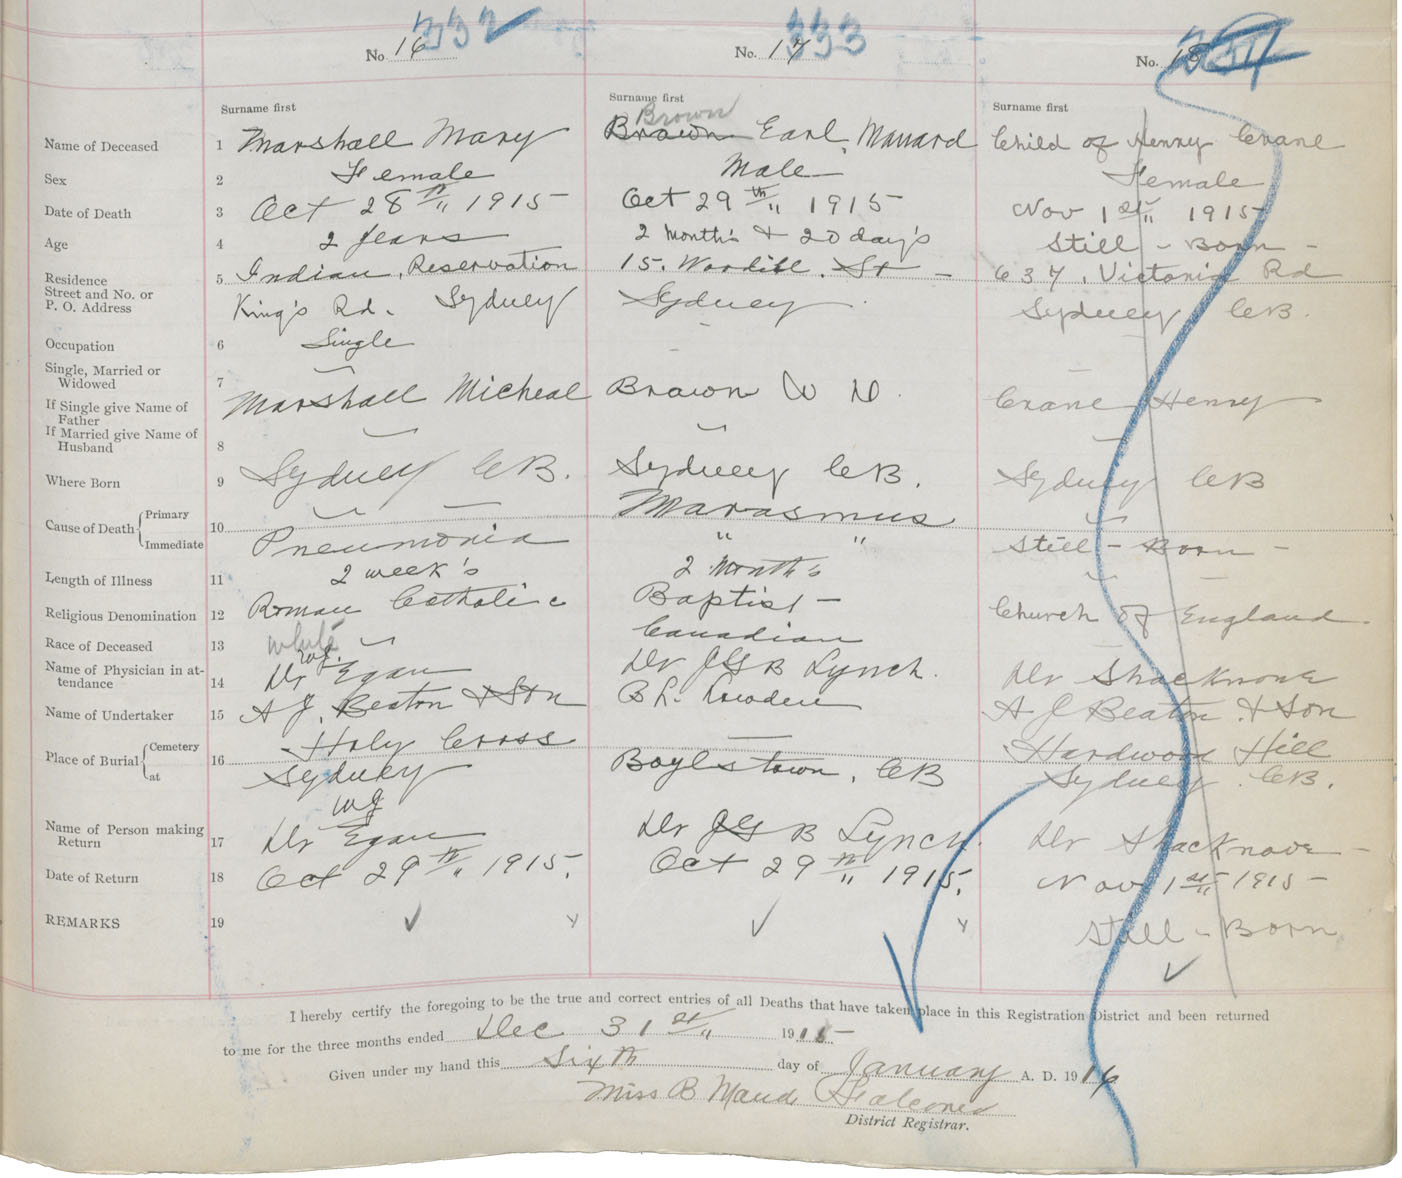 332 333
No 16 No. 17 No. 18
Surname first Surname first Surname first
Brown
Name of Deceased 1 Marshall Mary Brown Earl, Manard Child of Henry Crane
Sex 2 Female Male Female
Date of Death 3 Oct 28th 1915 Oct 29th 1915 Nov 1st 1915
Age 4 2 years 2 Month's & 20 day's Still - Born -
Residence 5 Indian, Reservation 15. St - 637, Victoria Rd
Street and No. or
P. O. Address King's Rd. Sydney Sydney Sydney CB.
Occupation 6 Single -
Single, Married or
Widowed 7
If Single give Name of
Father Marshall Micheal Brown W D. Crane Henry
If Married give Name of
Husband 8
Where Born 9 Sydney CB. Sydney CB. Sydney CB
Cause of Death Primary 10 Marasmus
Immediate Pneumonia " " Still - Born -
Length of Illness 11 2 week's 2 Month's
Religious Denomination 12 Roman Catholic Baptist - Church of England.
Race of Deceased 13 white Canadian
Name of Physician in at-
tendance 14 Dr WJ. Egan Dr JGB Lynch. Dr Shacknove
Name of Undertaker 15 A J. Beaton & Son B L. Lowden A J Beaton & Son
Place of Burial Cemetery 16 Holy Cross Hardwood Hill
at Sydney Boylstown, CB Sydney CB.
Name of Person making
Return 17 Dr WJ Egan Dr JGB Lynch. Dr Shacknove -
Date of Return 18 Oct 29th 1915. Oct 29th 1915. Nov 1st 1915 -
REMARKS 19 Still - Born
I hereby certify the foregoing to be the true and correct entries of all Deaths that have taken place in this Registration District and been returned
to me for the three months ended Dec 31st 1915 -
Given under my hand this Sixth day of January A. D. 1916
Miss B Maude Falconer
District Registrar.